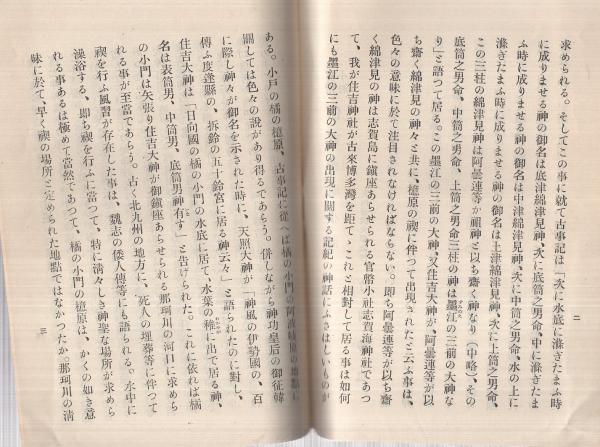 二
求められる。そしてこの事に就て古事記は「次に水底に滌ぎたまふ時
に成りませる神の御名は底津綿津見神、次に底筒之男命、中に滌ぎたま
ふ時に成りませる神の御名は中津綿津見神、次に中筒之男命、水の上に
滌ぎたまふ時に成りませる神の御名は上津綿津見神、次に上筒之男命、
この三柱の綿津見神は阿曇連等が祖神と以ち齋く神なり（中略）、その
底筒之男命、中筒之男命、上筒之男命三柱の神は墨江の三前の大神な
り」と語つて居る。この墨江の三前の大神、又住吉大神が、阿曇連等が以
ち齋く綿津見の神々と共に、檍原の禊に伴つて出現されたと云ふ事は、
色々の意味に於て注目されなければならない。即ち阿曇連等が以ち齋
く綿津見の神は志賀島に鎮座あらせられる官幣小社志賀海神社であつ
て、我が住吉神社が古來博多灣を距てゝこれと相對して居る事は如何
にも墨江の三前の大神の出現に關する記紀の神話にふさはしいものが
ある。小戸の橘の檍原、古事記に從へば橘の小門の阿波岐原の地點に
關しては色々の說があり得るであらう。併しながら神功皇后の御征韓
に際し神々が御名を示された時に、天照大神が「神風の伊勢國の、百
傳ふ度逢縣の、拆鈴の五十鈴宮に居る神云々」と語られたのに對し、
住吉大神は「日向國の橘の小門の水底に居て、水葉の稚に出で居る神、
名は表筒男、中筒男、底筒男神有す」と告げられた。これに依れば橘
の小門は矢張り住吉大神が御鎮座あらせられる那珂川の河口に求めら
れる事が至當であらう。古く北九州の地方に、死人の埋葬等に伴つて
禊を行ふ風習が存在した事は、魏志の倭人傳等にも語られる。水中に
澡浴する、即ち禊を行ふに當つて、特に清々しき神聖な場所が求めら
れる事あるは極めて當然であつて、橘の小門の檍原は、かくの如き意
味に於て、早く禊の場所と定められた地點ではなかつたか。那珂川の清
三